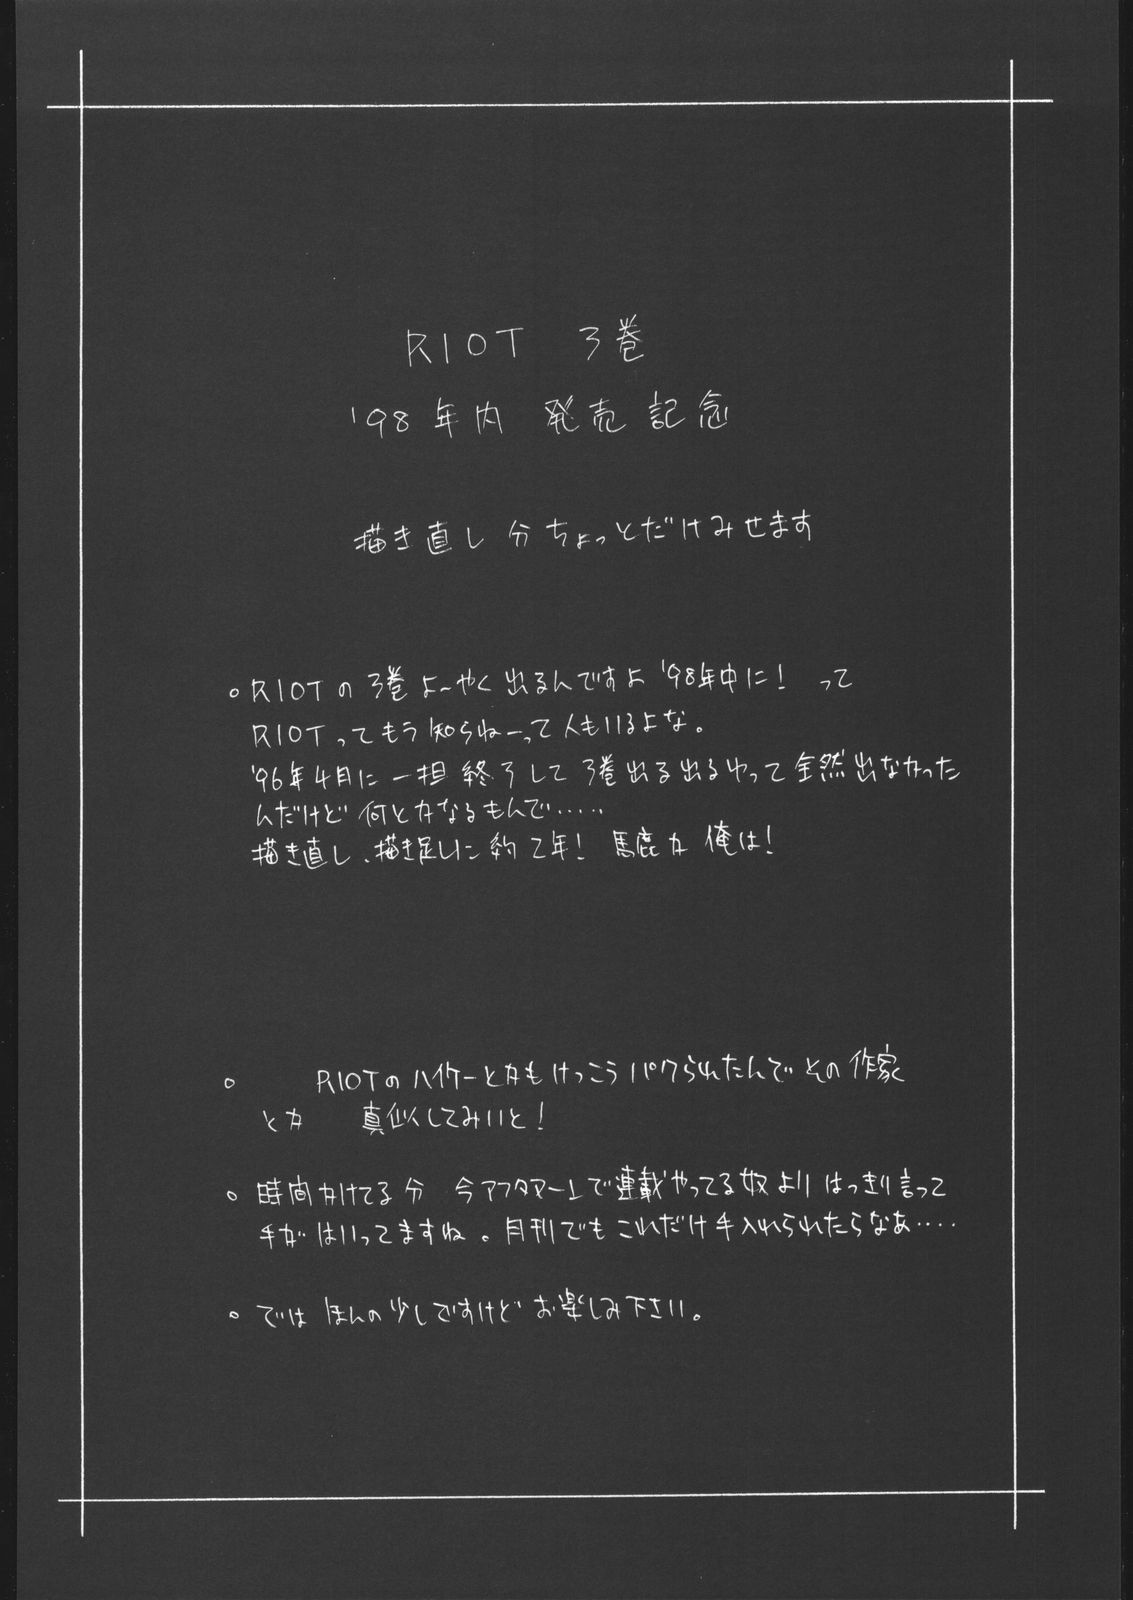 RIOT 3巻
'98年内 発売記念
描き直し分ちょっとだけみせます
。RIOTの3巻よーやく出るんですよ'98年中に! って
RIOTってもう知らねーって人もいるよな。
'96年4月に一担終了して3巻出る出るゆって全然出なかった
んだけど何とかなるもんで‥‥‥
描き直し、描き足しに約2年! 馬鹿か俺は!
。 RIOTのハイケーとかもけっこうパクられたんでその作家
とか 真似してみいと!
。時間かけてる分 今アフタヌーンで連載やってる奴よりはっきり言って
手がはいってますね。月刊でもこれだけ手入れられたらなあ‥‥
。では ほんの少しですけど お楽しみ下さい。